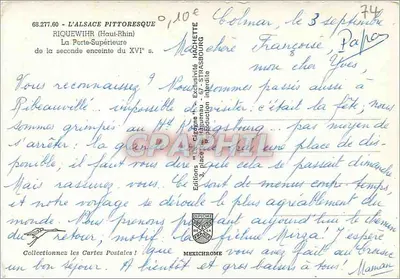 68.277.60 - L'ALSACE PITTORESQUE
RIQUEWIHR (Haut-Rhin)
La Porte-Supérieure
de la seconde enceinte du XVIe s.
0,10€
74
Colmar, le 3 septembre
Ma chère Françoise,
Papa
mon cher Yves
Vous reconnaissez ? Nous sommes passés aussi à
Ribeauvillé impossible de visiter : c'était la fête, nous
sommes grimpés au Ht pas moyen de
s'arrêter : la place de dis-
ponible, il faut vous dire que cela se passait dimanche
Mais rassurez vous. Ce sont de menus contre-temps,
et notre voyage se déroule le plus agréablement du
monde. Nous prenons pourtant aujourd'hui le chemin
du retour, motif : la J'espère
que vous avez fait
un bon séjour. A bientôt et gros baisers à tous. Maman
Editions "
Exclusivité HACHETTE
3, place 67-STRASBOURG
Reproduction interdite
CPAPHIL
MEXICHROME
Collectionnez les Cartes Postales !